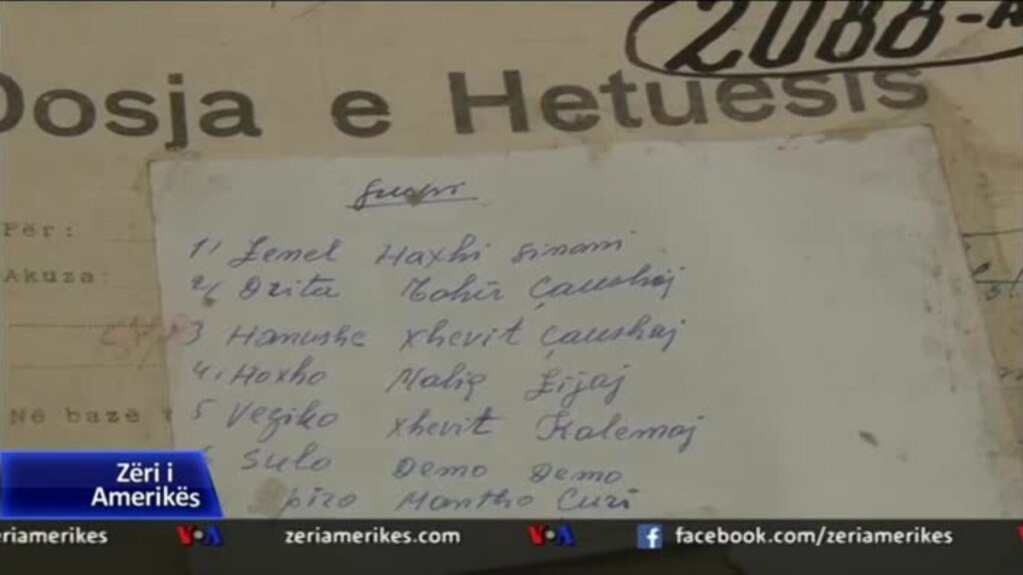 2088-A
Dosja e Hetuesis
Grupi
Për:
1, Zenel Haxhi Sinani
Akuza:
2, Drita Tahir Çaushaj
3 Hanushe Xhevit Çaushaj
4, Hoxho Maliq Zijaj
Në bazë
5 Veziko Xhevit Kalemaj
6 Sulo Demo Demo
piro Mantho Curi
Zëri i
Amerikës
eriamerikes VOA zeriamerikes.com VOA f facebook.com/zeriamerikes